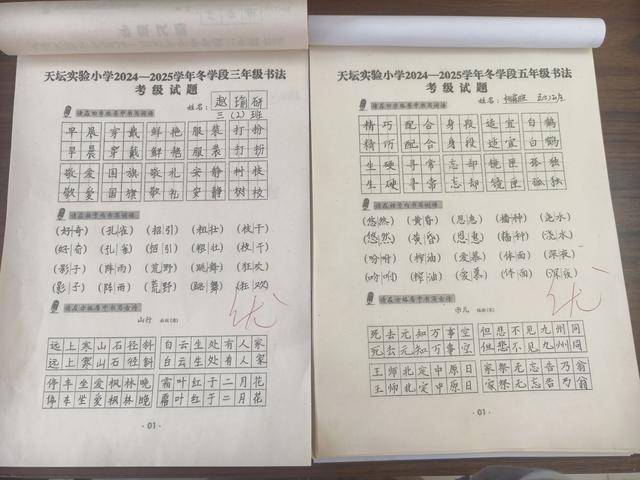 天坛实验小学2024—2025学年冬学段三年级书法
考级试题
姓名：赵瑜研
三（2）班
请在田字格看中书写词语
早晨 穿戴 鲜艳 服装 打扮
早晨 穿戴 鲜艳 服装 打扮
敬爱 国旗 敬礼 安静 树枝
敬爱 国旗 敬礼 安静 树枝
请在括号内书写词语
(好奇) (孔雀) (招引) (粗壮) (枝干)
(好奇) (孔雀) (招引) (粗壮) (枝干)
(影子) (阵雨) (荒野) (跳舞) (狂欢)
(影子) (阵雨) (荒野) (跳舞) (狂欢)
请在方格看中书写古诗
优
山行
远上寒山石径斜 白云生处有人家
远上寒山石径斜 白云生处有人家
停车坐爱枫林晚 霜叶红于二月花
停车坐爱枫林晚 霜叶红于二月花
· 01 ·
天坛实验小学2024—2025学年冬学段五年级书法
考级试题
姓名：
请在田字格看中书写词语
精巧 配合 身段 适宜 白鹤
精巧 配合 身段 适宜 白鹤
生硬 寻常 忘却 镜匣 孤独
生硬 寻常 忘却 镜匣 孤独
请在括号内书写词语
(悠然) (黄昏) (恩惠) (播种) (浇水)
(悠然) (黄昏) (恩惠) (播种) (浇水)
(吩咐) (榨油) (爱慕) (体面) (深夜)
(吩咐) (榨油) (爱慕) (体面) (深夜)
请在方格看中书写古诗
优
示儿
死去元知万事空 但悲不见九州同
死去元知万事空 但悲不见九州同
王师北定中原日 家祭无忘告乃翁
王师北定中原日 家祭无忘告乃翁
· 01 ·